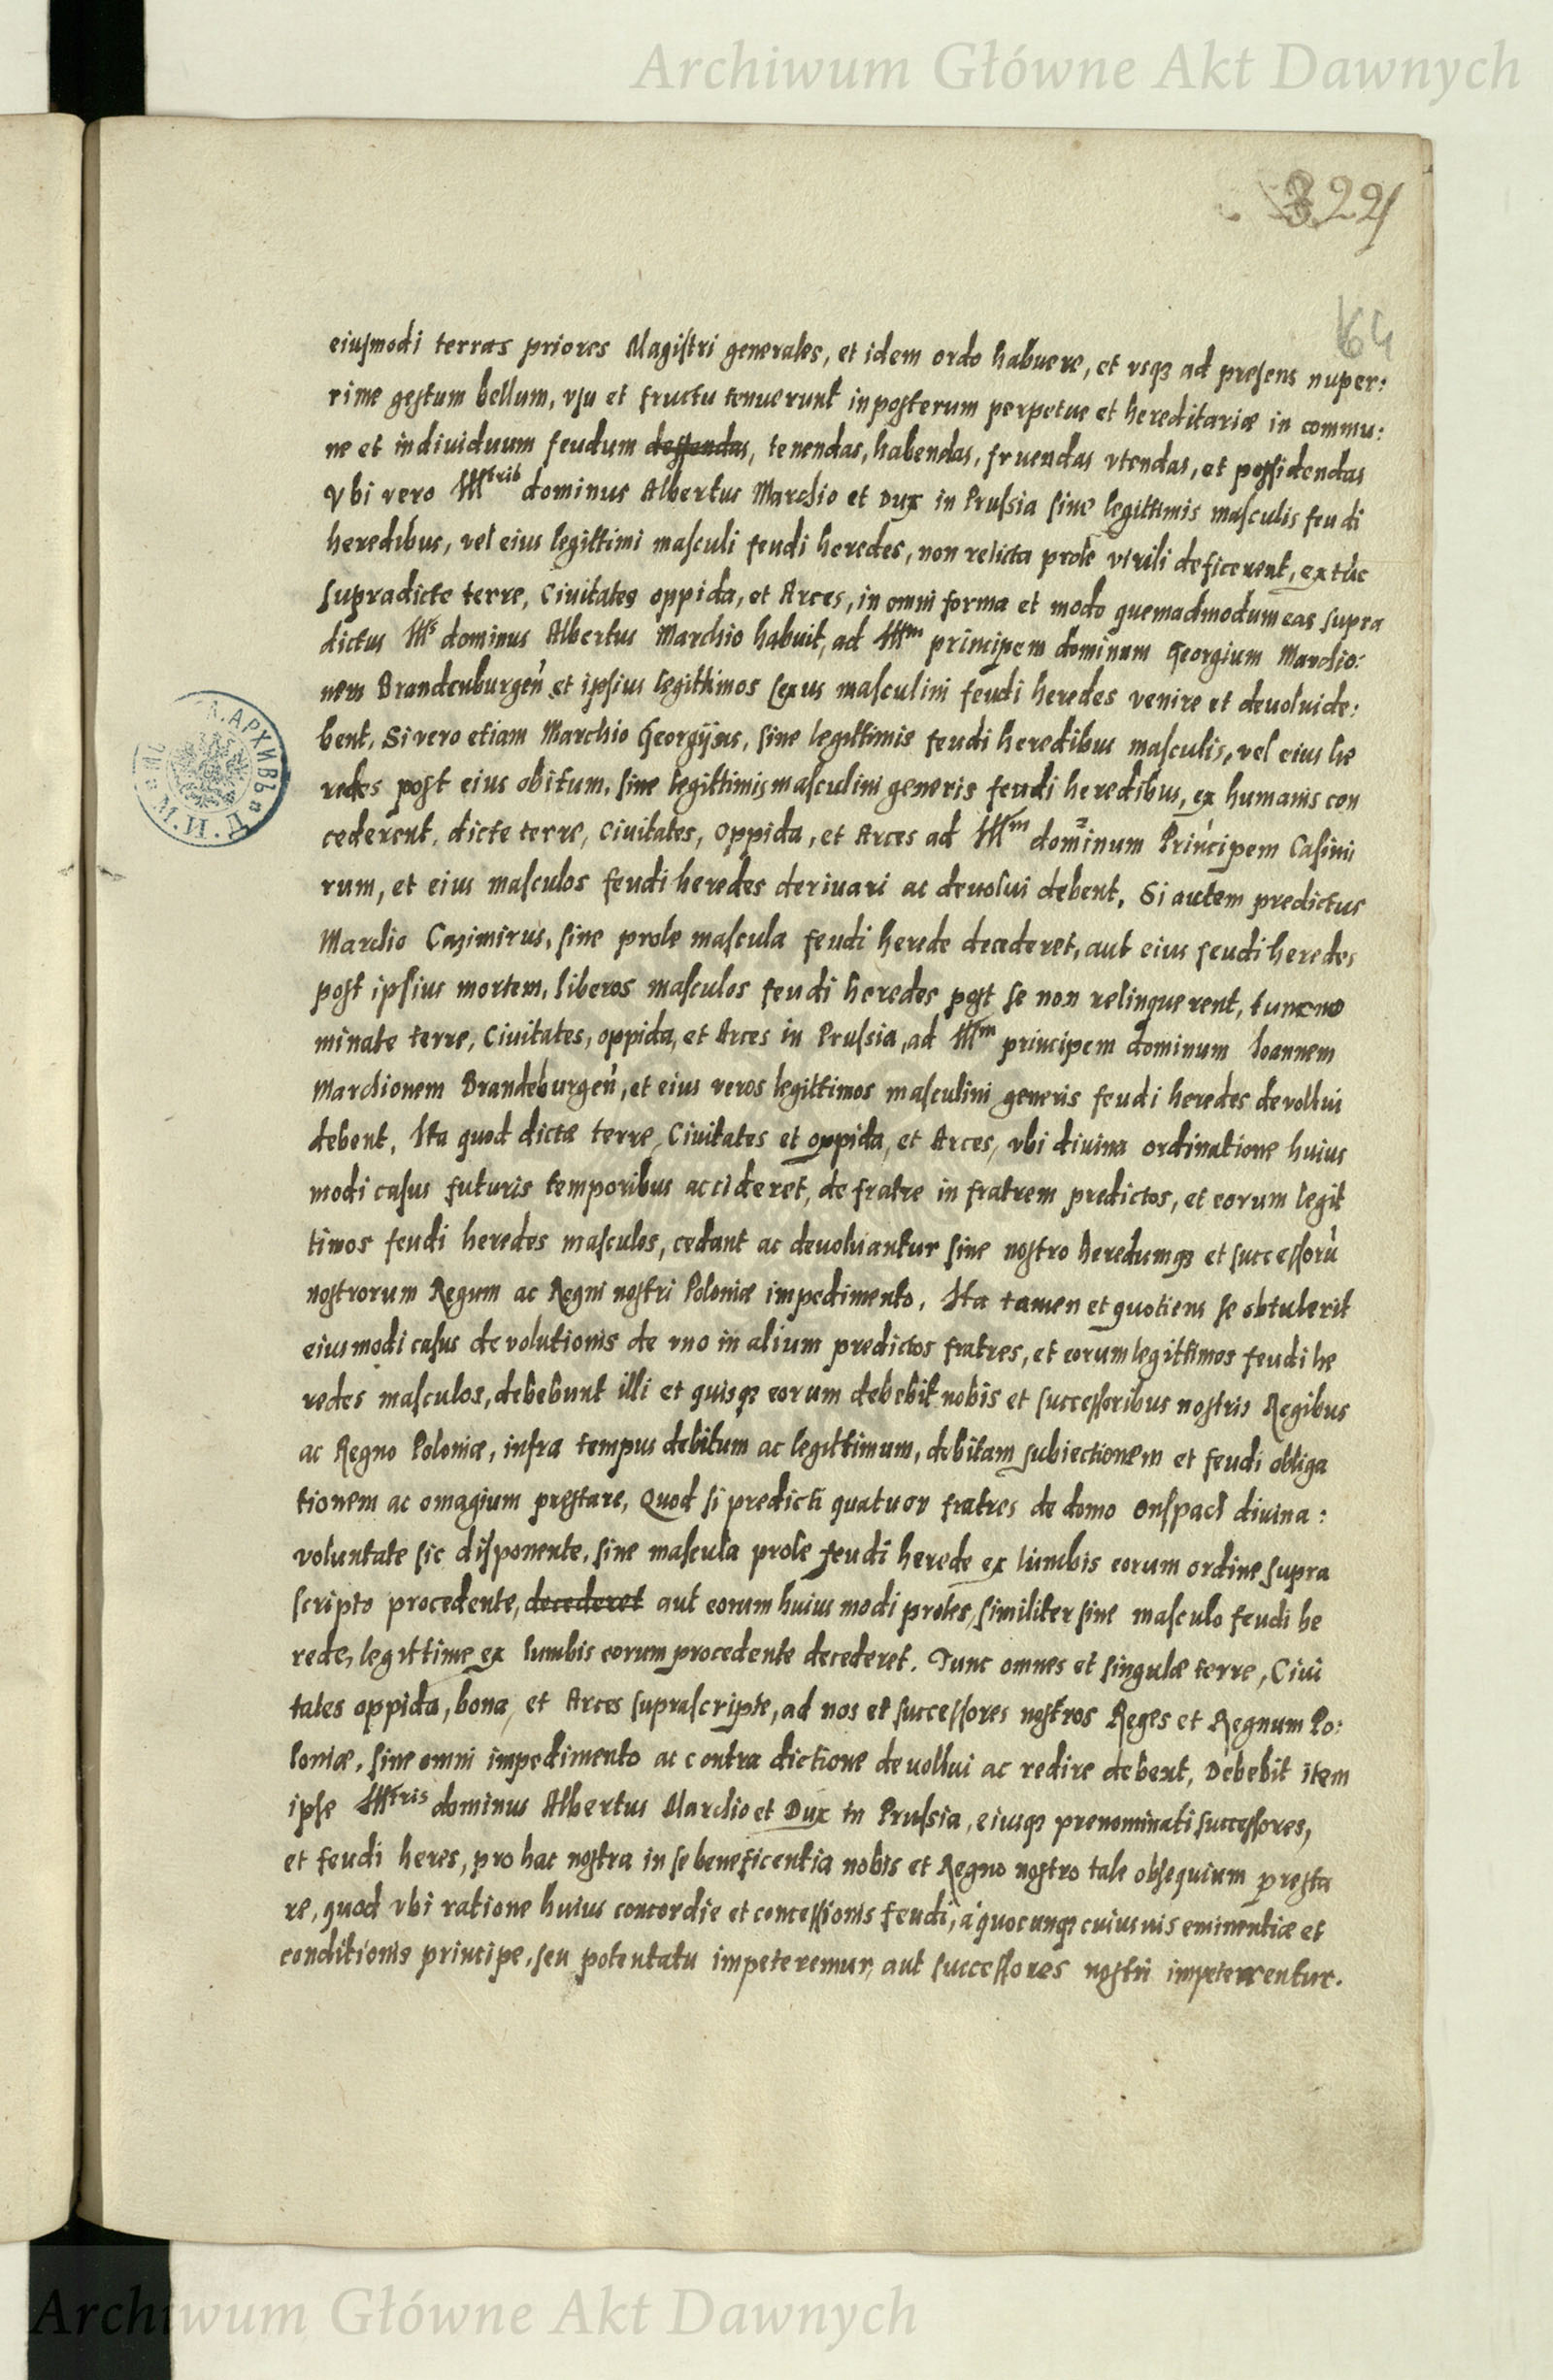 Archiwum Główne Akt Dawnych
322
64
eiusmodi terras priores Magistri generales, et idem ordo habuere, et vsq; ad presens nuper:
rime gestum bellum, vsu et fructu tenuerunt inposterum perpetue et hereditariæ in commu:
ne et indiuiduum feudum dessendas, tenendas, habendas, fruendas vtendas, et possidendas
Vbi vero Illtris dominus Albertus Marchio et Dux in Prussia sine legittimis masculis feudi
heredibus, vel eius legittimi masculi feudi heredes, non relicta prole virili deficerent, extūc
supradicte terre, Ciuitates oppida, et Arces, in omni forma et modo quemadmodum eas supra
dictus Ills dominus Albertus Marchio habuit, ad Illm principem dominum Georgium Marchio:
nem Brandenburgeñ et ipsius legittimos sexus masculini feudi heredes venire et deuolui de:
bent, Si vero etiam Marchio Georgijus, sine legittimis feudi heredibus masculis, vel eius he
redes post eius obitum, sine legittimis masculini generis feudi heredibus, ex humanis con
cederent, dicte terre, Ciuitates, oppida, et Arces ad Illm dominum Principem Casimi
rum, et eius masculos feudi heredes deriuari ac deuolui debent, Si autem predictus
Marchio Cazimirus, sine prole mascula feudi herede decederet, aut eius feudi heredes
post ipsius mortem, liberos masculos feudi heredes post se non relinquerent, tunc no
minate terre, Ciuitates, oppida, et Arces in Prussia, ad Illm principem dominum Ioannem
Marchionem Brandeburgeñ, et eius veros legittimos masculini generis feudi heredes devollui
debent, Ita quod dictæ terre, Ciuitates et oppida, et Arces, vbi diuina ordinatione huius
modi casus futuris temporibus accideret, de fratre in fratrem predictos, et eorum legit
timos feudi heredes masculos, cedant ac deuoluantur sine nostro heredumq; et successorū
nostrorum Regum ac Regni nostri Poloniæ impedimento, Ita tamen et quotiens se obtulerit
eiusmodi casus devolutionis de vno in alium predictos fratres, et eorum legittimos feudi he
redes masculos, debebunt illi et quisq; eorum debebit nobis et successoribus nostris Regibus
ac Regno Poloniæ, infra tempus debitum ac legittimum, debitam subiectionem et feudi obliga
tionem ac omagium prestare, Quod si predicti quatuor fratres de domo Onspach diuina:
voluntate sic disponente, sine mascula prole feudi herede ex lumbis eorum ordine supra
scripto procedente, decederet aut eorum huiusmodi proles, similiter sine masculo feudi he
rede, legittime ex lumbis eorum procedente decederet. Tunc omnes et singulæ terre, Ciui
tates oppida, bona, et Arces suprascripte, ad nos et successores nostros Reges et Regnum Po:
loniæ, sine omni impedimento ac contradictione devollui ac redire debent, Debebit item
ipse Illtris dominus Albertus Marchio et Dux in Prussia, eiusq; prenominati successores,
et feudi heres, pro hac nostra in se beneficentia nobis et Regno nostro tale obsequium presta
re, quod vbi ratione huius concordie et concessionis feudi, a quocunq; cuiusuis eminentiæ et
conditionis principe, seu potentatu impeteremur, aut successores nostri impeterentur.
Archiwum Główne Akt Dawnych